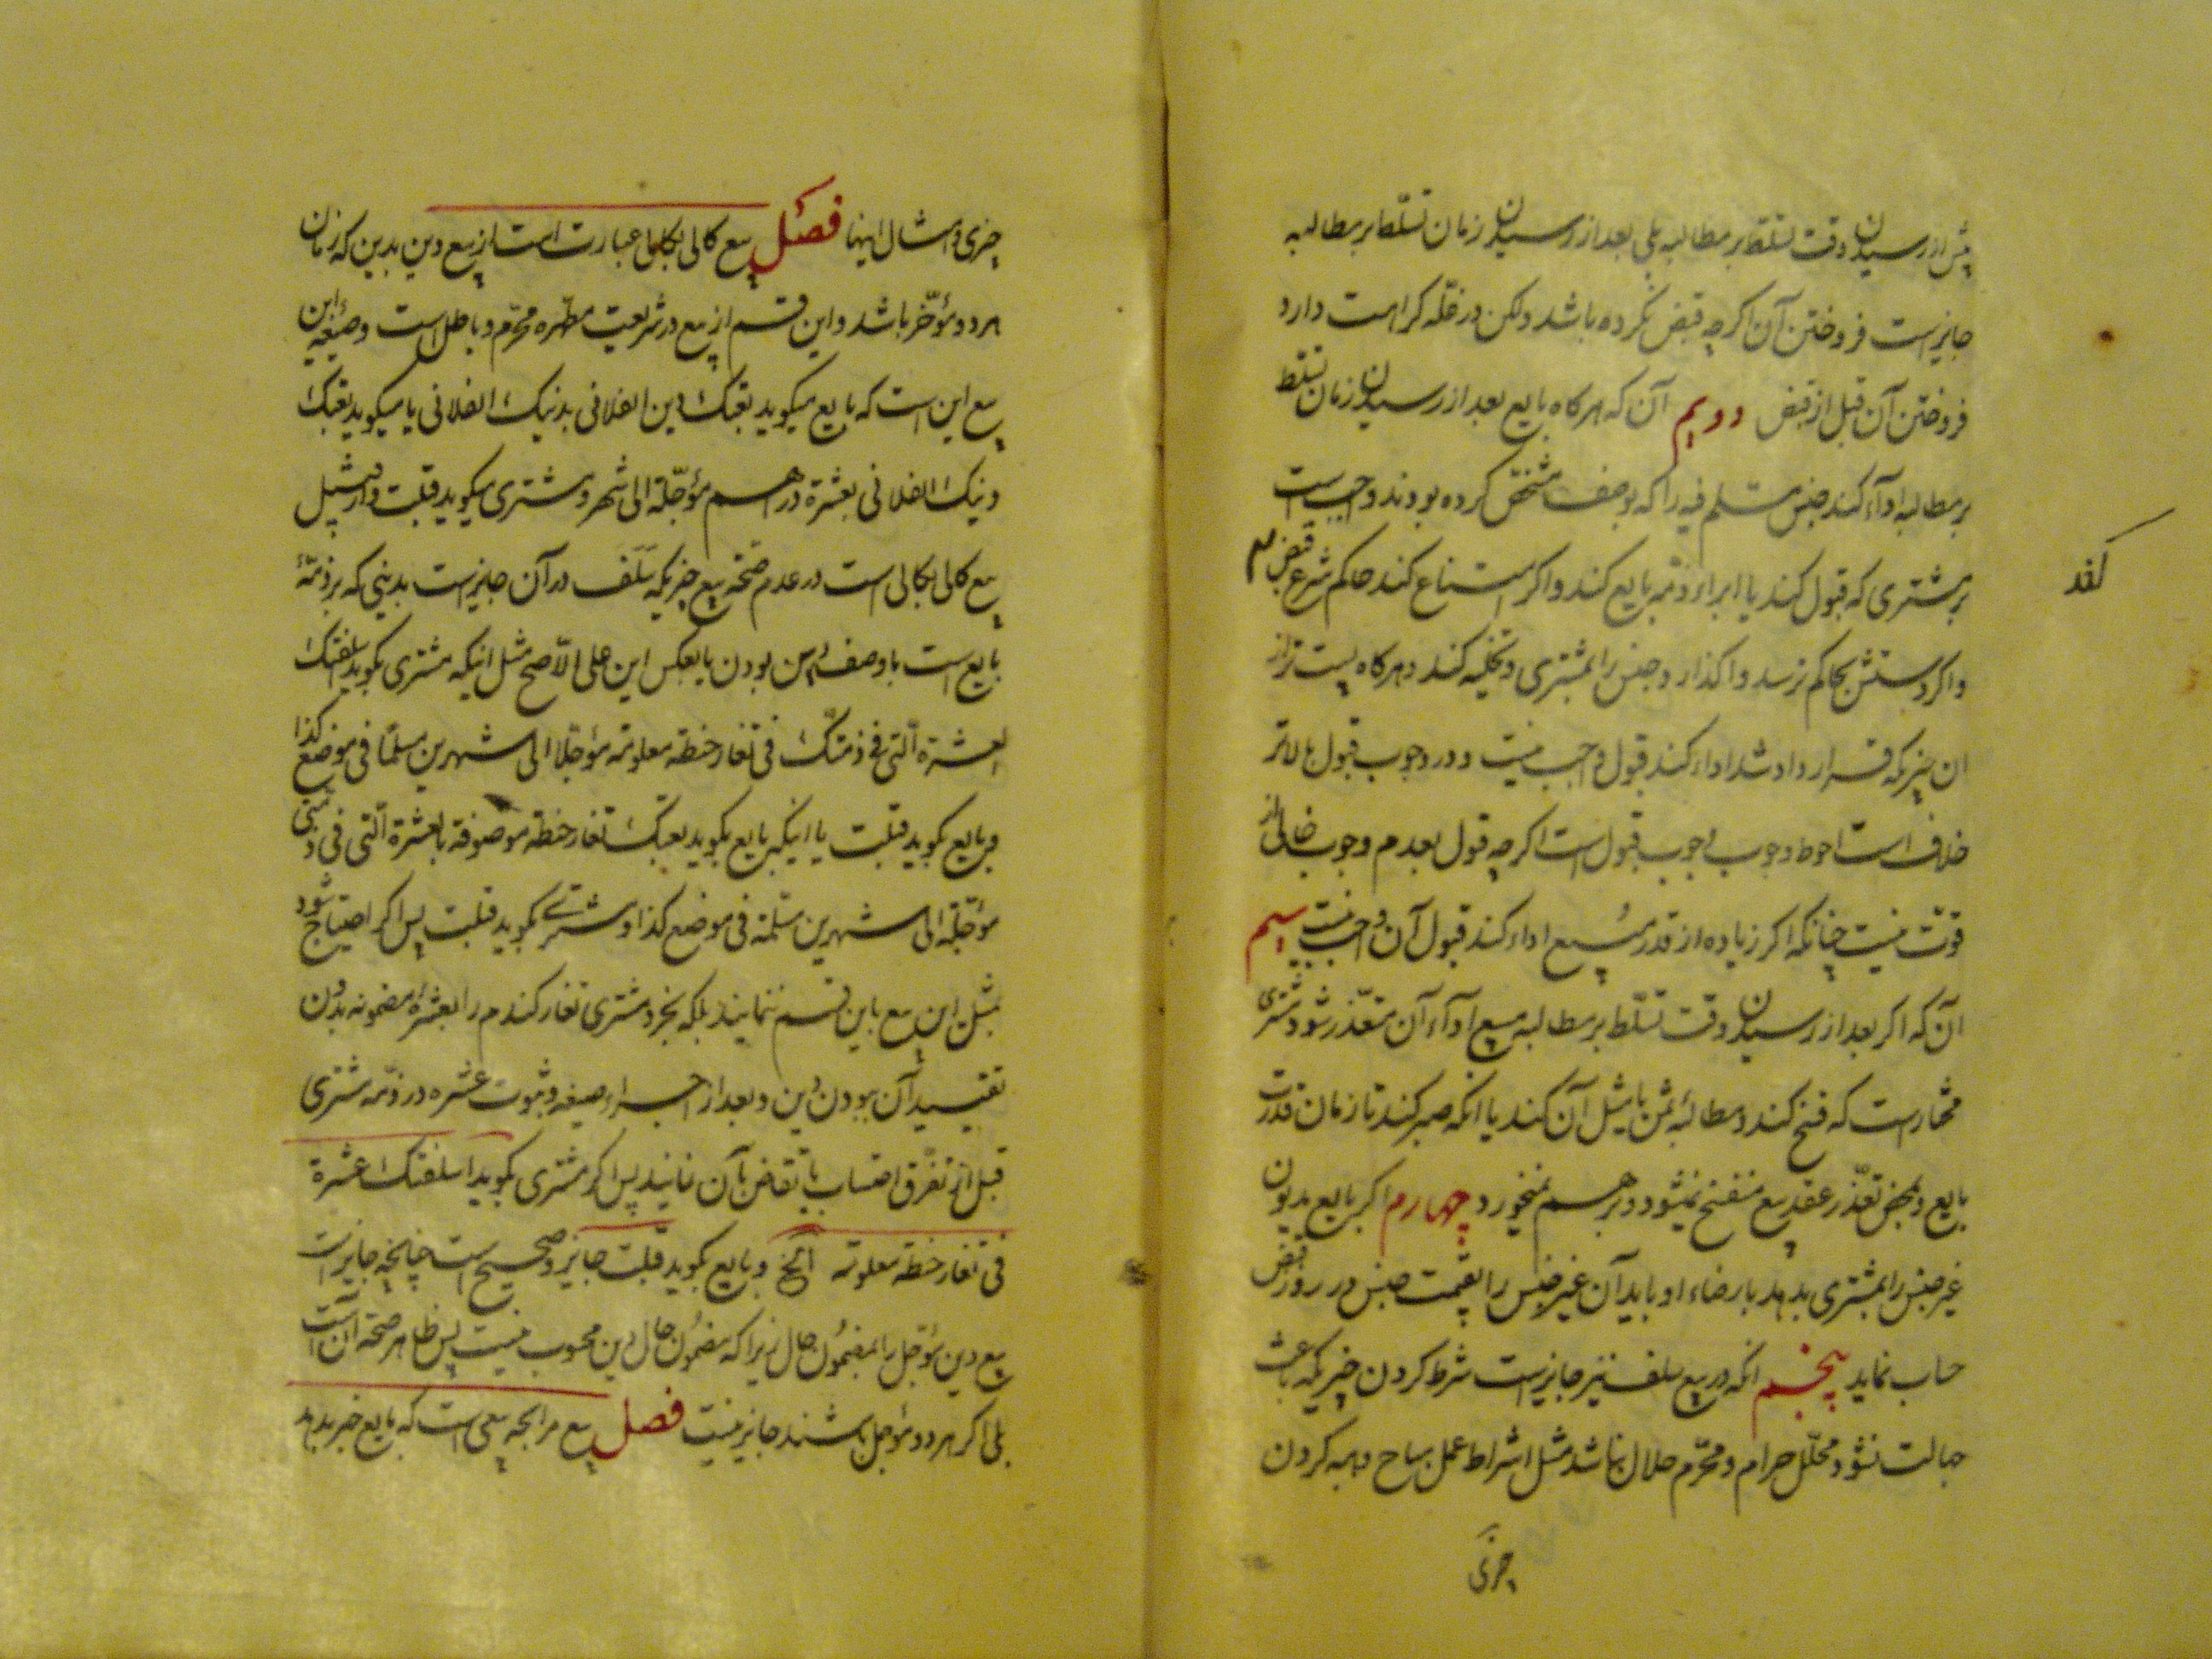 پیش از رسیدن وقت تسلط بر مطالبه بلی بعد از رسیدن زمان تسلط بر مطالبه
جایز است فروختن آن اکرچه قبض نکرده باشد ولکن در غلّه کراهت دارد
فروختن آن قبل از قبض دویم آن که هرکاه بایع بعد از رسیدن زمان تسلط
بر مطالبه اداء کند جنس مسلم فیه را که بوصف مشخّص کرده بودند واجب است
بر مشتری که قبول کند یا ابراء ذمّه بایع کند و اکر امتناع کند حاکم شرع قبض
کند
و اکر دستش بحاکم نرسد واکذارد جنس را بمشتری و تخلیه کند و هرکاه پست تر از
ان چیزیکه قرار داد شد اداء کند قبول واجب نیست و در وجوب قبول بالاتر
خلاف است احوط وجوب قبول است اکرچه قول بعدم وجوب خالی از
قوّت نیست چنانکه اکر زیاده از قدر مبیع اداء کند قبول آن واجب نیست سیم
آن که اکر بعد از رسیدن وقت تسلّط بر مطالبه مبیع اداء آن متعذّر شود مشتری
مختار است که فسخ کند و مطالبهٔ ثمن یا مثل آن کند یا انکه صبر کند تا زمان قدرت
بایع و بمحض تعذّر عقد بیع منفسخ نمیشود و بر هم نمیخورد چهارم اکر بایع مدیون
غیر جنس را بمشتری بدهد با رضاء او باید آن غیر جنس را بقیمت جنس در روز قبض
حساب نماید پنجم انکه در بیع سلف نیز جایز است شرط کردن چیزیکه باعث
جهالت نشود و محلّل حرام و محرّم حلال نباشد مثل اشتراط عمل مباح و هبه کردن
چیزی
چیزی و امثال اینها فصل بیع کالی بکالی عبارت است از بیع دین بدین که زمان
هر دو مؤخّر باشد و این قسم از بیع در شریعت مطهّره محرّم و باطل است و صیغه این
بیع این است که بایع میکوید بعتک دین الفلانی بدینک الفلانی یا میکوید بعتک
دینک الفلانی بعشرة دراهم مؤجّلة الی شهر و مشتری میکوید قبلت و از قبیل
بیع کالی بکالی است در عدم صحّة بیع چیزیکه سَلَف در آن جایز است بدینی که بر ذمّهٔ
بایع است با وصف ثمن بودن یا بعکس این علی الاصح مثل اینکه مشتری بکوید اسلفتک
العشرة الّتی فی ذمّتک فی تغار حنطة معلومة مؤجّلا الی شهرین مسلّما فی موضع کذا
و بایع بکوید قبلت یا اینکه بایع بکوید بعتک تغار حنطة موصوفة بالعشرة الّتی فی ذمتی
مؤجّلة الی شهرین مسلّمة فی موضع کذا و مشتری بکوید قبلت پس اکر احتیاج شود
بمثل این بیع باین قسم ننمایند بلکه بخرد مشتری تغار کندم را بعشرهٔ مضمونه بدون
تقیید آن بودن دین و بعد از اجراء صیغه و ثبوت عشره در ذمّه مشتری
قبل از تفرّق احتساب یا تقاض بآن نمایند پس اکر مشتری بکوید اسلفتک عشرة
فی تغار حنطة معلومة الخ و بایع بکوید قبلت جایز و صحیح است چنانچه جایز است
بیع دین مؤجّل را بمضمون حال زیرا که مضمون حال دین محسوب نیست پس ظاهر صحّة آن است
بلی اکر هر دو مؤجل باشند جایز نیست فصل بیع مرابحه بیعی است که بایع خبر بدهد